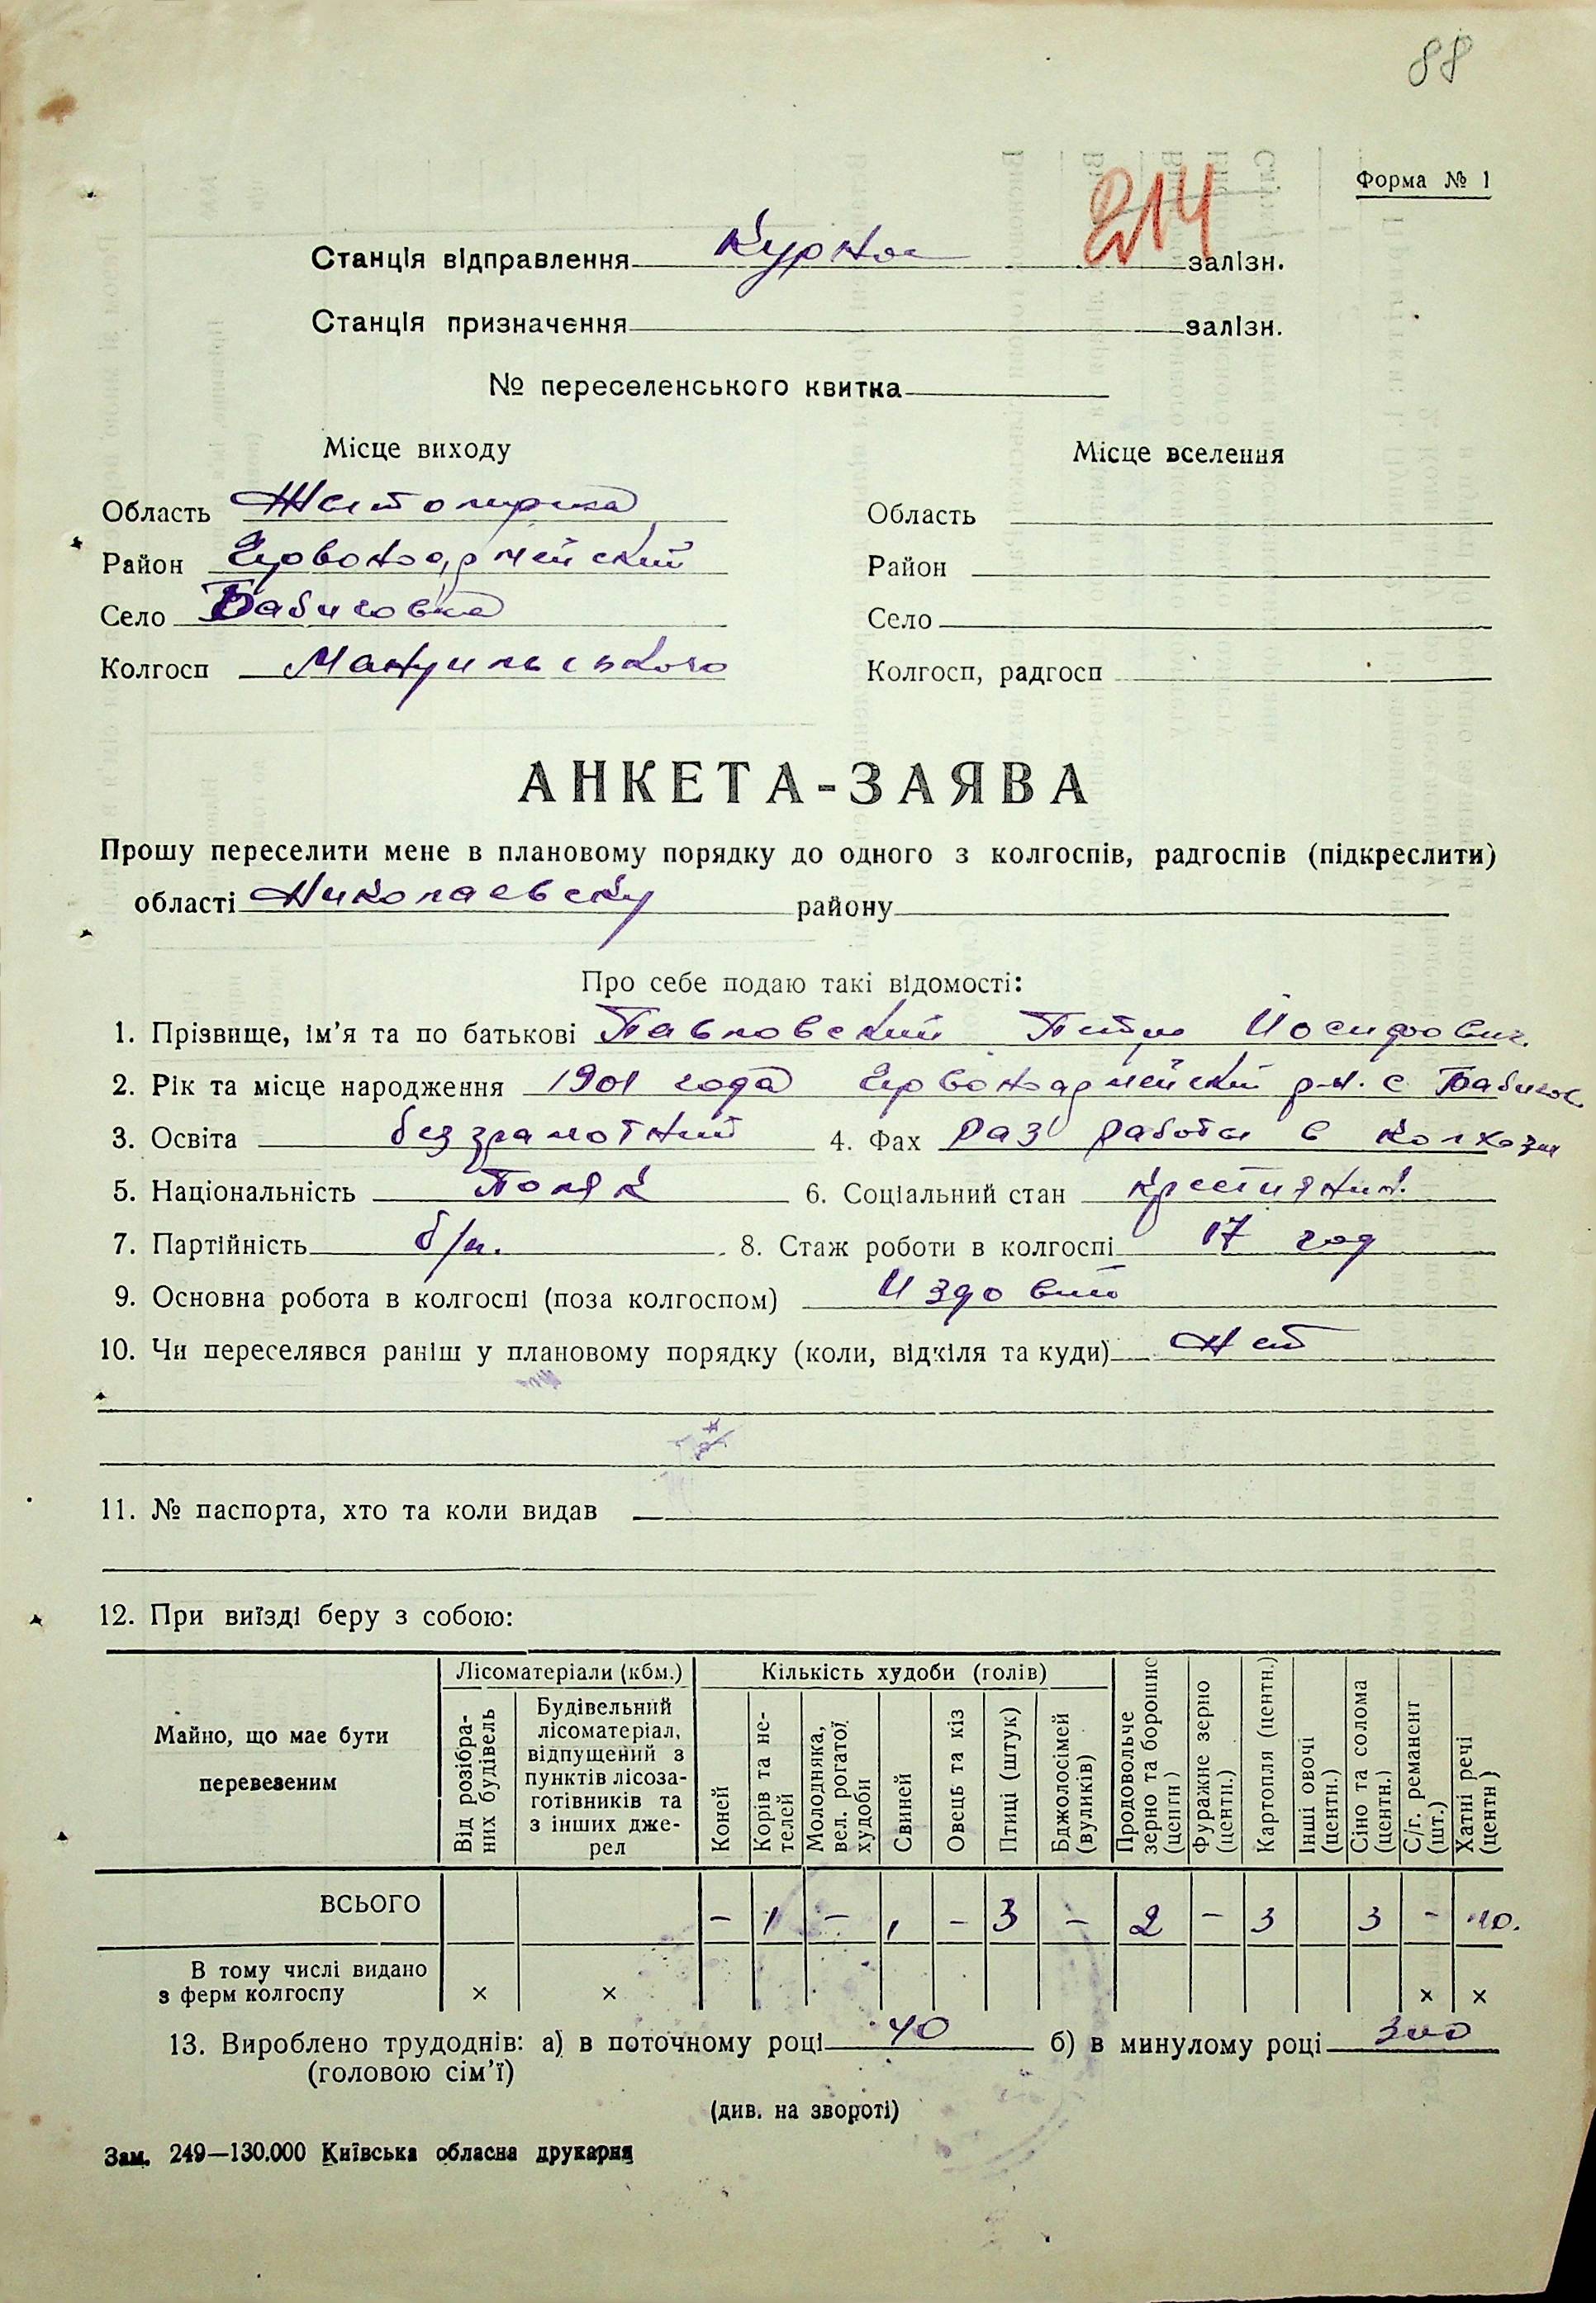 88
Форма № 1
214
Станція відправлення Курное залізн.
Станція призначення залізн.
№ переселенського квитка
Місце виходу
Місце вселення
Область Житомирска
Область
Район Червоноармейский
Район
Село Бабичовка
Село
Колгосп Мануильського
Колгосп, радгосп
АНКЕТА-ЗАЯВА
Прошу переселити мене в плановому порядку до одного з колгоспів, радгоспів (підкреслити)
області Николаевску району
Про себе подаю такі відомості:
1. Прізвище, ім'я та по батькові Павловский Петро Йосифович.
2. Рік та місце народження 1901 года Червоноармейский р-н. с Бабичов.
3. Освіта безграмотний 4. Фах Раз работы в колхозе
5. Національність Поляк 6. Соціальний стан крестиянин.
7. Партійність б/п. 8. Стаж роботи в колгоспі 17 год
9. Основна робота в колгоспі (поза колгоспом) Издовий
10. Чи переселявся раніш у плановому порядку (коли, відкіля та куди) Нет
11. № паспорта, хто та коли видав
12. При виїзді беру з собою:
Майно, що має бути перевезеним
Лісоматеріали (кбм.)
Кількість худоби (голів)
Від розібраних будівель
Будівельний лісоматеріал, відпущений з пунктів лісозаготівників та з інших джерел
Коней
Корів та нетелей
Молодняка, вел. рогатої худоби
Свиней
Овець та кіз
Птиці (штук)
Бджолосімей (вуликів)
Продовольче зерно та борошно (центн)
Фуражне зерно (центн.)
Картопля (центн.)
Інші овочі (центн.)
Сіно та солома (центн.)
С/г. реманент (шт.)
Хатні речі (центн)
ВСЬОГО – 1 – 1 – 3 – 2 – 3 3 – 10.
В тому числі видано
з ферм колгоспу × × × ×
13. Вироблено трудоднів: а) в поточному році 40 б) в минулому році 300
(головою сім'ї)
(див. на звороті)
Зам. 249—130.000 Київська обласна друкарня